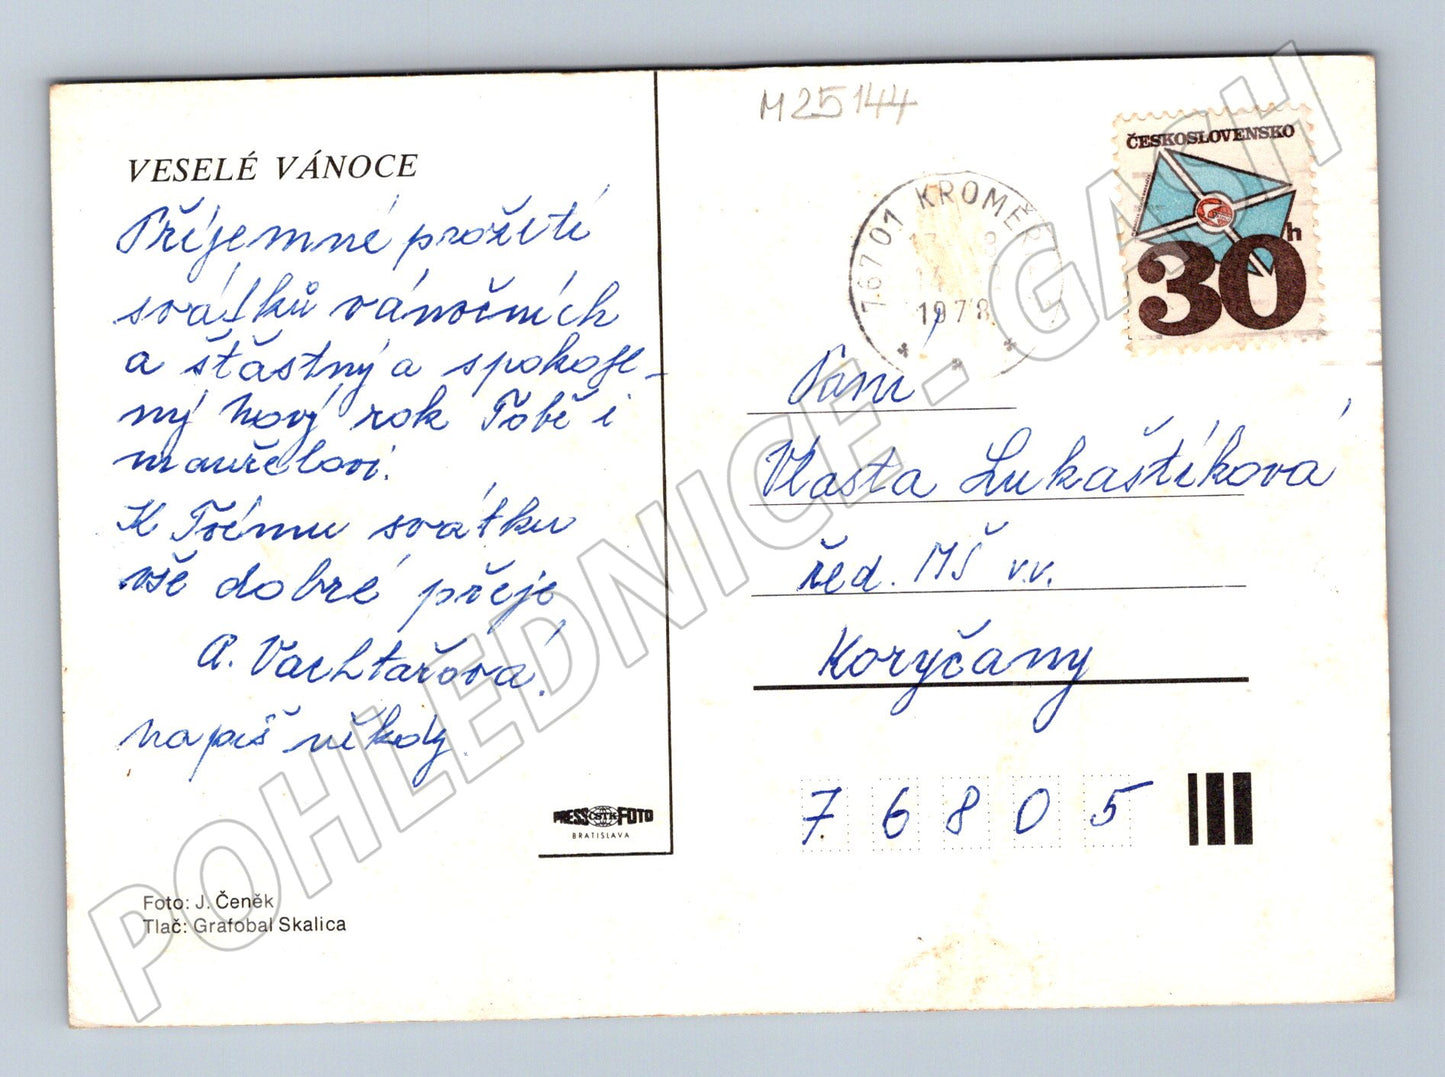 VESELÉ VÁNOCE
Příjemné prožití
svátků vánočních
a šťastný a spokoje-
ný nový rok Tobě i
manželovi.
K Tvému svátku
vše dobré přeje
A. Vachtařová!
napiš někdy.
PRESS ČSTK FOTO
BRATISLAVA
Foto: J. Čeněk
Tlač: Grafobal Skalica
M25144
767 01 KROMĚŘ
1978
ČESKOSLOVENSKO
30h
Paní
Vlasta Lukaštíková
řed. MŠ v.v.
Koryčany
76805
POHLEDNICE.GASH